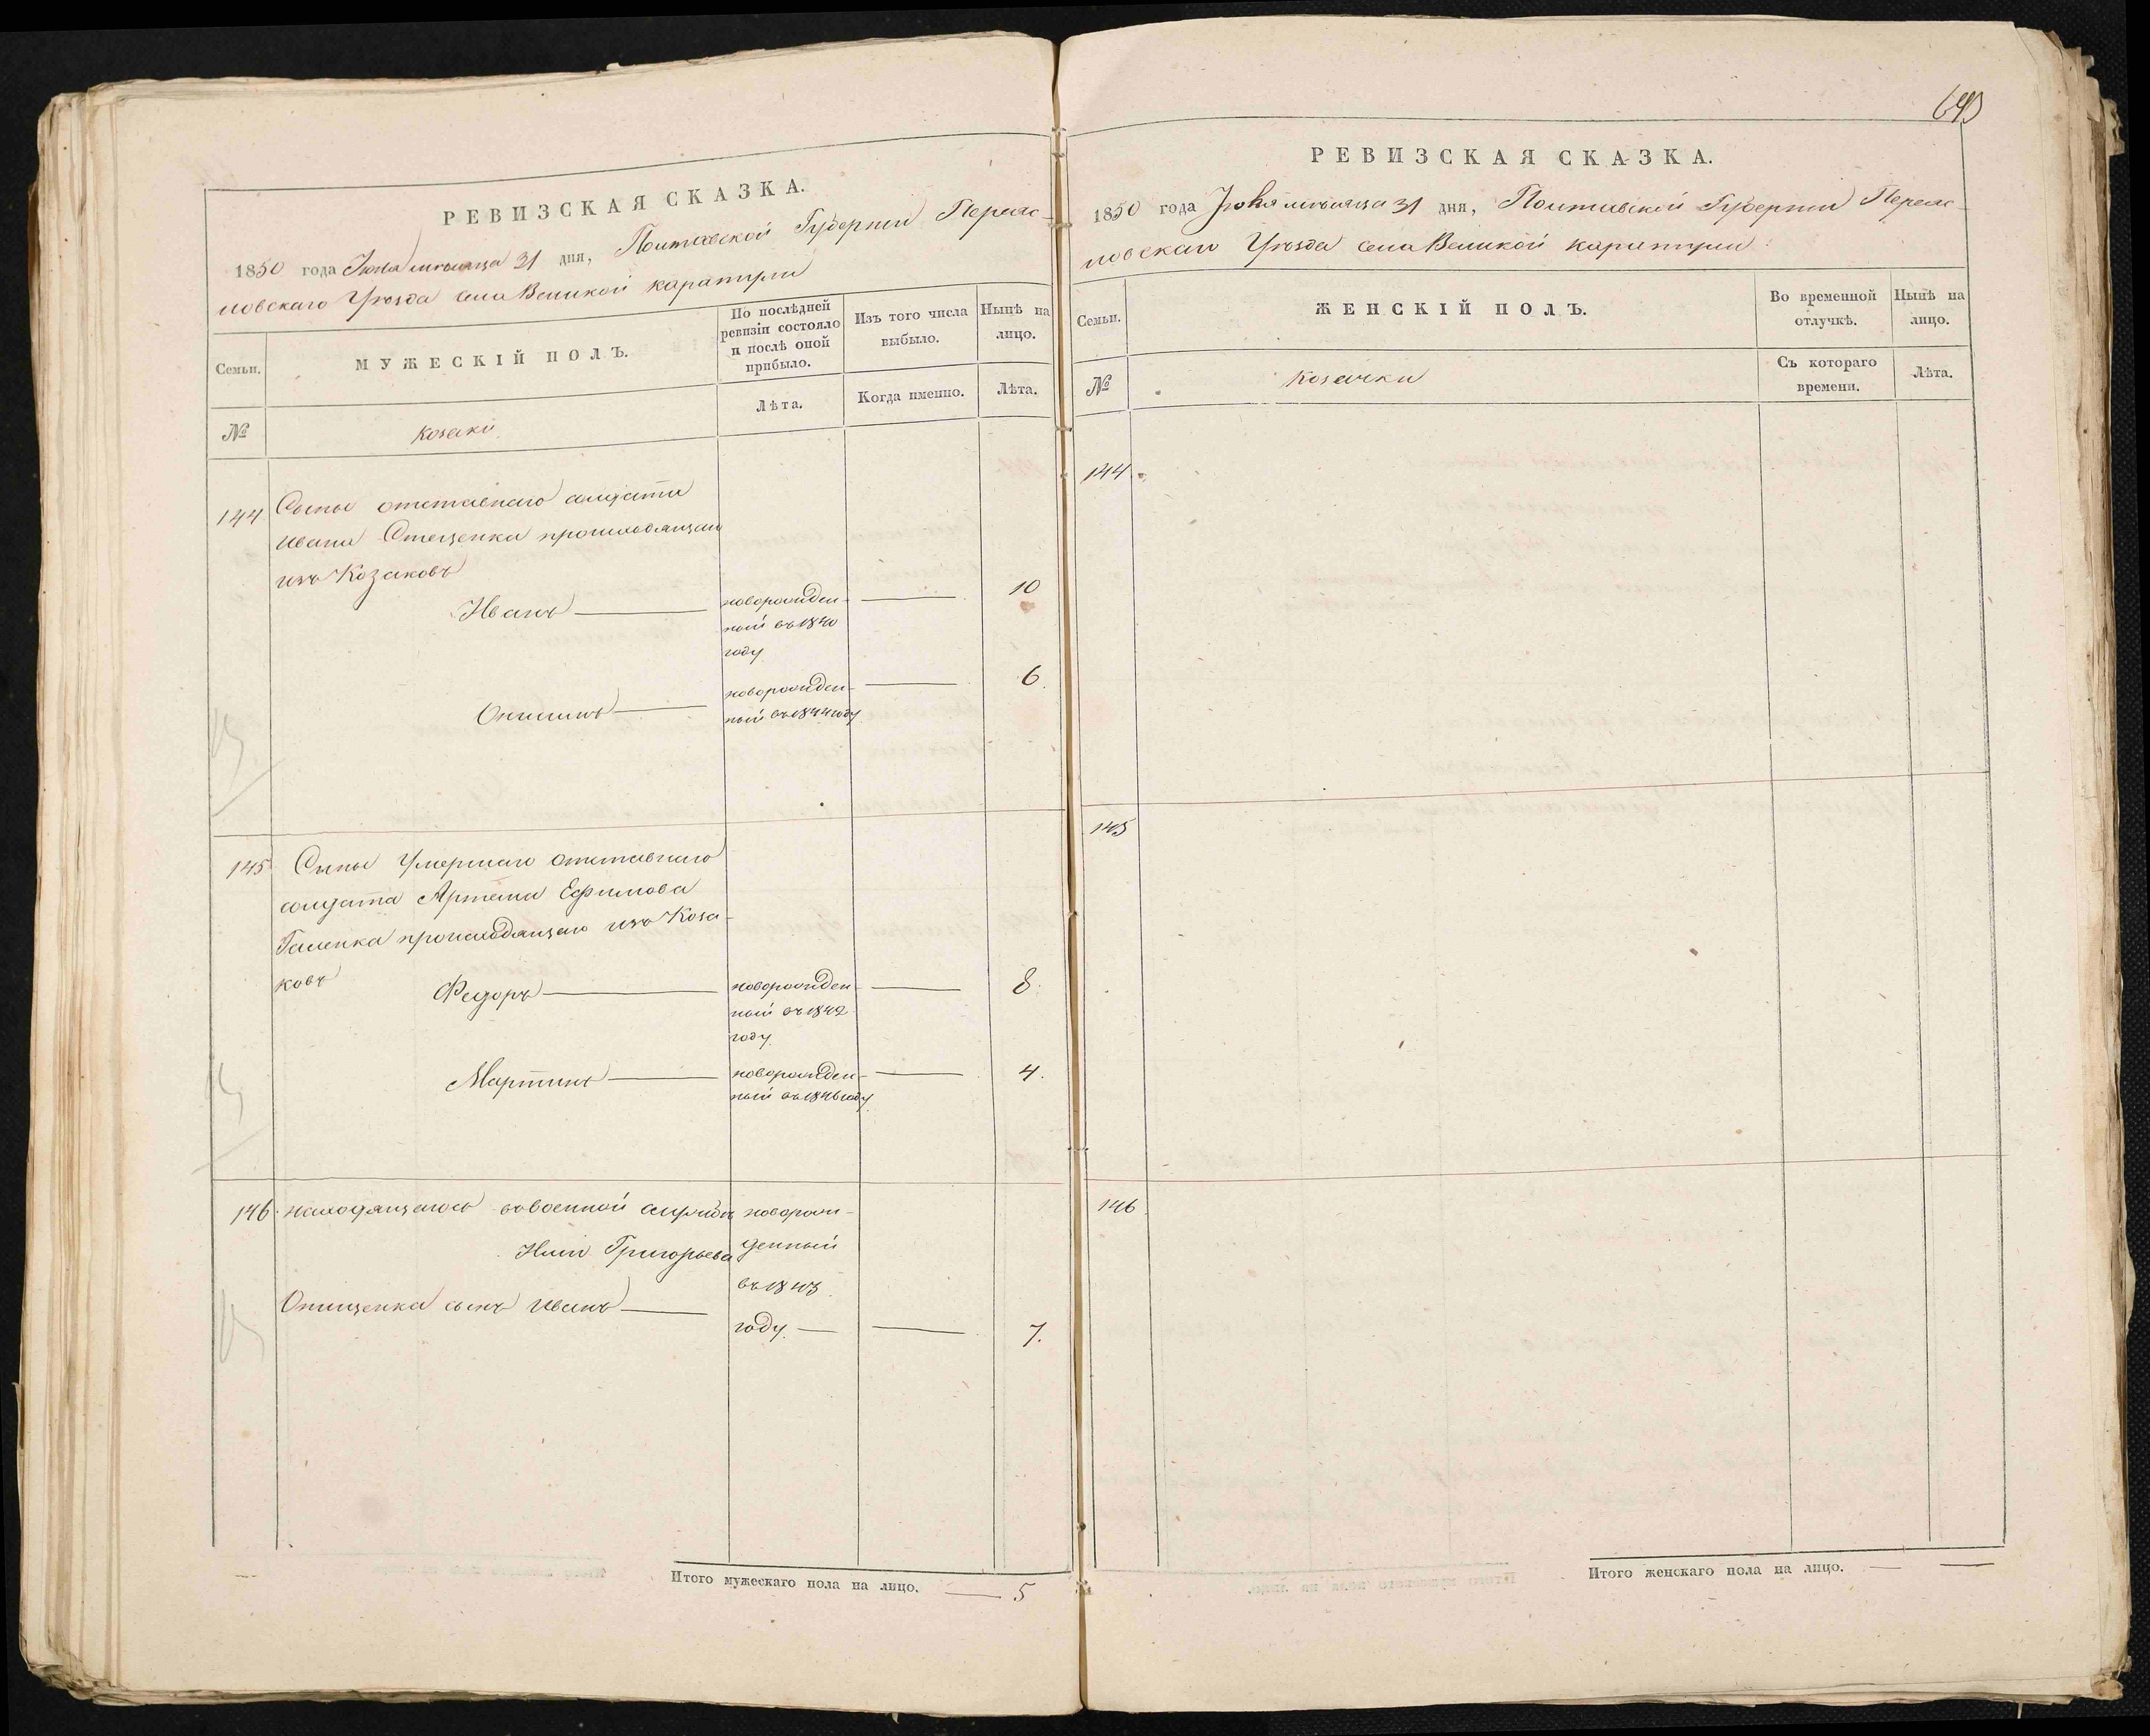 РЕВИЗСКАЯ СКАЗКА.
1850 года Іюля мѣсяца 31 дня, Полтавской Губерніи Переяс-
ловскаго Уѣзда села Великой каратули
Семьи.
МУЖЕСКІЙ ПОЛЪ.
По послѣдней
ревизіи состояло
и послѣ оной
прибыло.
Изъ того числа
выбыло.
Нынѣ на
лицо.
№
козаки
Лѣта.
Когда именно.
Лѣта.
144 Сыны отставнаго солдата
Ивана Стеценка происходящаго
изъ Козаковъ
Иванъ — новорожден- — 10
ный въ 1840
году
новорожден- — 6
ный въ 1844 году
145 Сыны Умершаго отставнаго
солдата Артема Ефимова
происходящаго изъ Коза-
ковъ
Федоръ — новорожден — 8.
ный въ 1842
году
Мартинъ — новорожден- — 4.
ный въ 1846 году
146 находящагося въ военной службѣ новорож-
Григорьева денный
въ 1843
Онищенка сынъ Иванъ —
году — — 7.
Итого мужескаго пола на лицо. — 5
РЕВИЗСКАЯ СКАЗКА.
1850 года Іюля мѣсяца 31 дня, Полтавской Губерніи Переяс-
ловскаго Уѣзда села Великой каратули
Семьи.
ЖЕНСКІЙ ПОЛЪ.
Во временной
отлучкѣ.
Нынѣ на
лицо.
№
козачки
Съ котораго
времени.
Лѣта.
144
145
146
Итого женскаго пола на лицо. — —